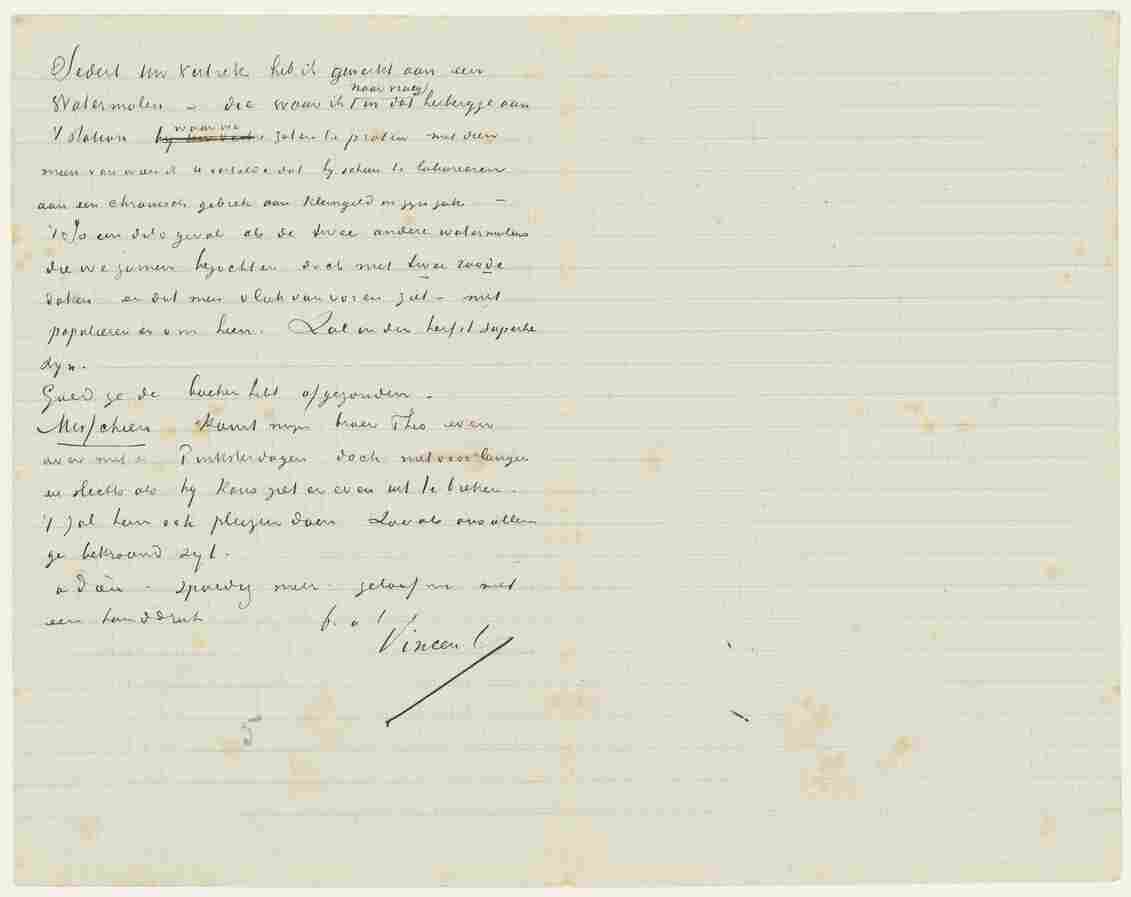 Sedert uw vertrek heb ik gewerkt aan een
Watermolen – die waar ik naar vroeg in dat herbergje aan
't station waar we zaten te praten met dien
man van wien ik U vertelde dat hij scheen te laboreeren
aan een chronisch gebrek aan kleingeld in zijn zak –
't Is een dito geval als de twee andere watermolens
die we zamen bezochten doch met twee roode
daken en dat men vlak van voren ziet – met
populieren er om heen. Zal in den herfst superbe
zijn.
Goed ge de boeken hebt afgezonden.
Misschien komt mijn broer Theo even
over met de Pinksterdagen doch niet voor langer
en slechts als hij kans ziet er even uit te breken.
't Zal hem ook pleizier doen
ge bekroond zijt.
adieu – spoedig meer – geloof me met
een handdruk b. à t.
Vincent
5